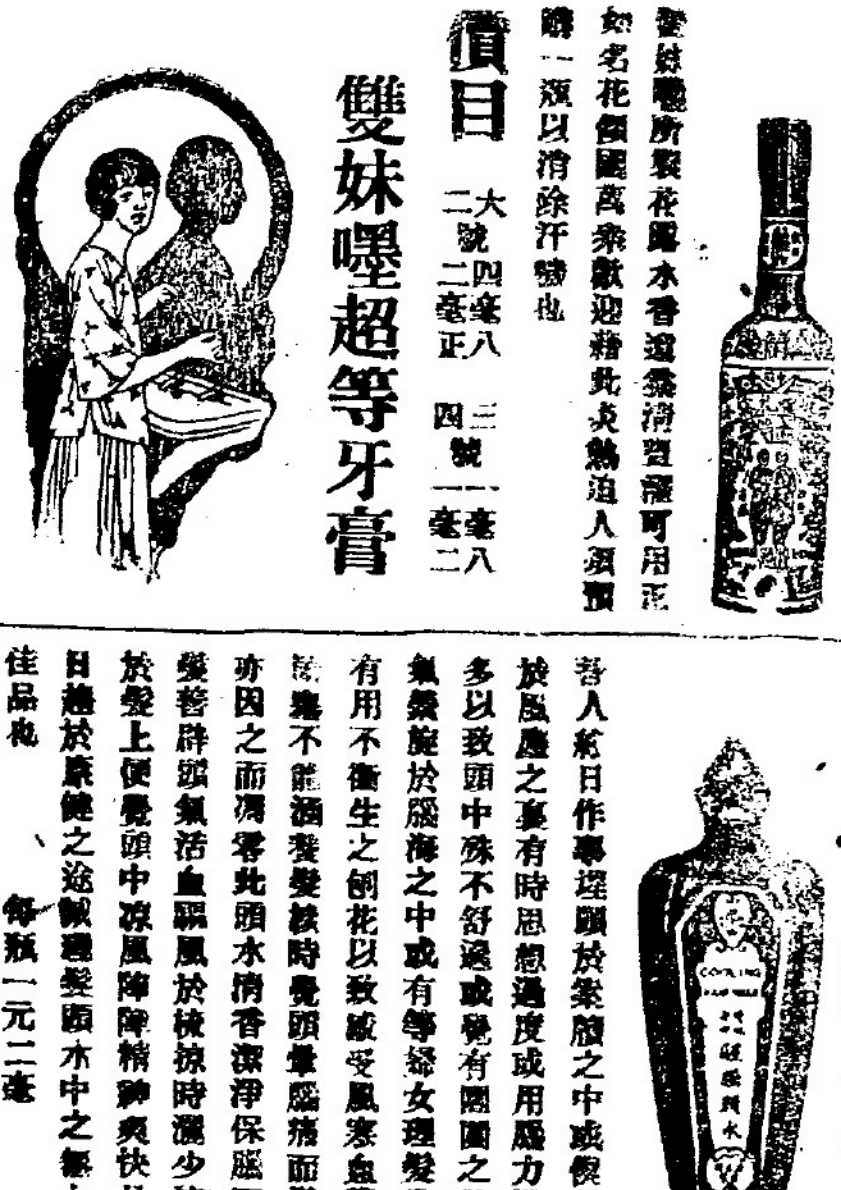 雙妹嚜所製花露水香遠露清豐洒可用正
如名花傾國萬衆歡迎藉此炎熱迫人須預
購一瓶以消除汗
也
價目
大號四毫八
二號二毫正
三號一毫八
四號一毫二
雙妹嚜超等牙膏
吾人終日作事埋頭於案牘之中或傑
於風塵之裏有時思想過度或用腦力
多以致頭中殊不舒適或覺有團團之
氣縈旋於腦海之中或有等婦女理髮
有用不衞生之刨花以致感受風寒血
不能滋養髮
時覺頭暈腦痛而
亦因之而凋零此頭水清香潔淨保腦
髮善辟頭氣活血驅風於梳掠時灑少
於髮上便覺頭中凉風陣陣精神爽快
日趨於康健之途誠理髮頭水中之
佳品也
每瓶一元二毫
COOLING
頭水